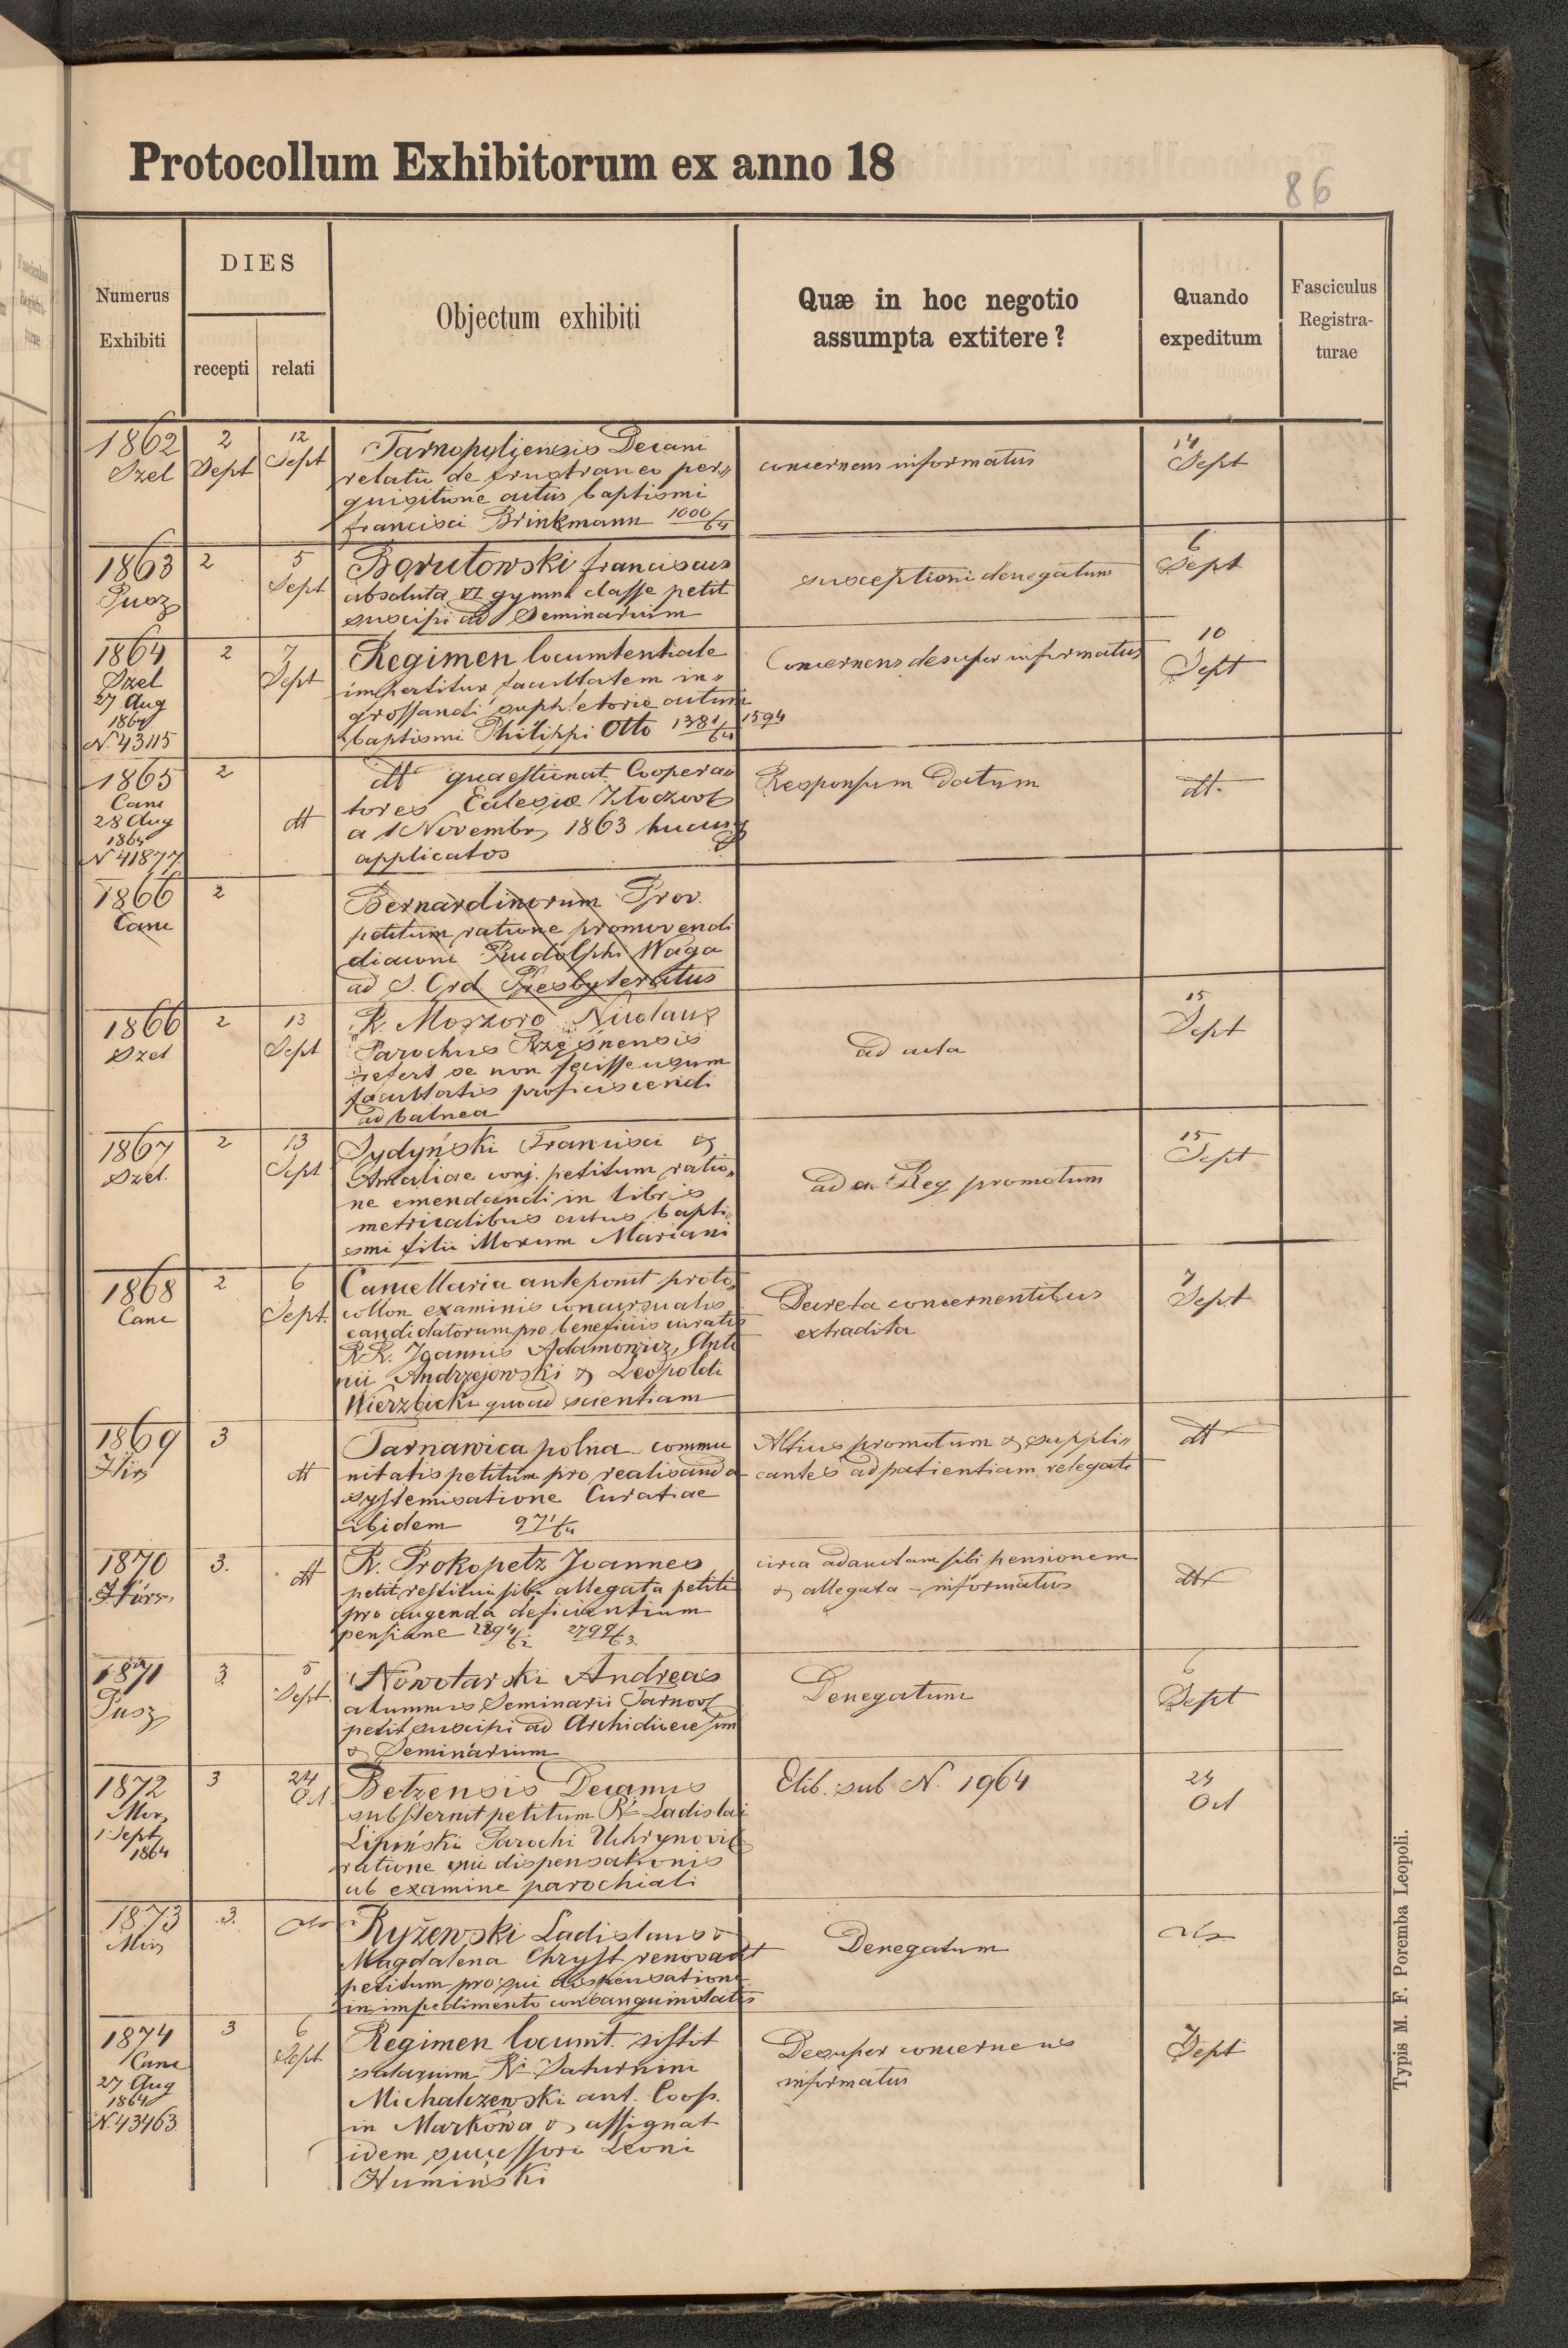 Protocollum Exhibitorum ex anno 18
86
Numerus Exhibiti
DIES
recepti
relati
Objectum exhibiti
Quæ in hoc negotio assumpta extitere?
Quando expeditum
Fasciculus Registra-turae
1862
Szel
2 Sept
12 Sept
Tarnopoljensis Decani
relatio de frustraneo per„
quisitione actus baptismi
Francisci Brinkmann 1000/64
concernens informatus
14 Sept
1863
Pusz
2
5 Sept
Borutowski Franciscus
absoluta VI gymn classe petit
suscipi ad Seminarium
susceptioni denegatum
6 Sept
1864
Szel
27 Aug
1864
N. 43115
2
7 Sept
Regimen locumtentiale
impertitur facultatem in„
grossandi suppletorie actum
baptismi Philippi Otto 1381/64 1594
Concernens desuper informatus
10 Sept
1865
Canc
28 Aug
1864
N 41877
2
dtt
dtt quaestionat Coopera„
tores Eclesiæ Złoczov
a 1 Novembr 1863 hucusq
applicatos
Responsum datum
dtt
1866
Canc
2
Bernardinorum Prov.
petitum ratione promovendi
diaconi Rudolphi Waga
ad S. Ord Presbyteratus
1866
Szel
2
13 Sept
R. Moszoro Nicolaus
Parochus Rzęsnensis
refert se non fecisse usum
facultatis proficiscendi
ad balnea
ad acta
15 Sept
1867
Szel.
2
13 Sept
Sydyński Francisci &
Amaliae conj. petitum ratio„
ne emendandi in libris
metricalibus actus bapti
smi filii illorum Mariani
ad Reg promotum
15 Sept
1868
Canc
2
6 Sept.
Cancellaria anteponit proto„
collon examinis concursualis
candidatorum pro beneficiis curatis
RR. Joannis Adamowicz, Anto
nii Andrzejowski & Leopoldi
Wierzbicki quoad scientiam
Decreta concernentibus
extradita
7 Sept
1869
3
dtt
Tarnawica polna commu
nitatis petitum pro realisanda
systemisatione Curatiae
ibidem 971/64
Altius promotum & suppli„
cantes ad patientiam relegati
dtt
1870
3.
dtt
R. Prokopetz Joannes
petit restitui sibi allegata petiti
pro augenda deficientium
pensione 2894/62 2792/63
circa adauctam sibi pensionem
& allegata - informatus
dtt
1871
Pusz
3
5 Sept.
Nowotarski Andreas
alumnus Seminarii Tarnov
petit suscipi ad Archidioecesim
& Seminarium
Denegatum
6 Sept
1872
Mor
1 Sept
1864
3
24 Oct.
Betzensis Decanus
substernit petitum R Ladislai
Lipiński Parochi Uhrynovie
ratione sui dispensationis
ab examine parochiali
Elib. sub N. 1964
24 Oct
1873
Mor
3.
Ryżewski Ladislaus &
Magdalena Chryst renovant
petitum pro sui dispensatione
in impedimento consanguinitatis
Denegatum
1874
Canc
27 Aug
1864
N. 43463
3
6 Sept
Regimen locumt. sistit
salarium R Saturnini
Michalczewski ant. Coop.
in Markowa & assignat
idem successori Leoni
Humiński
Desuper concernens
informatus
7 Sept
Typis M. F. Poremba Leopoli.